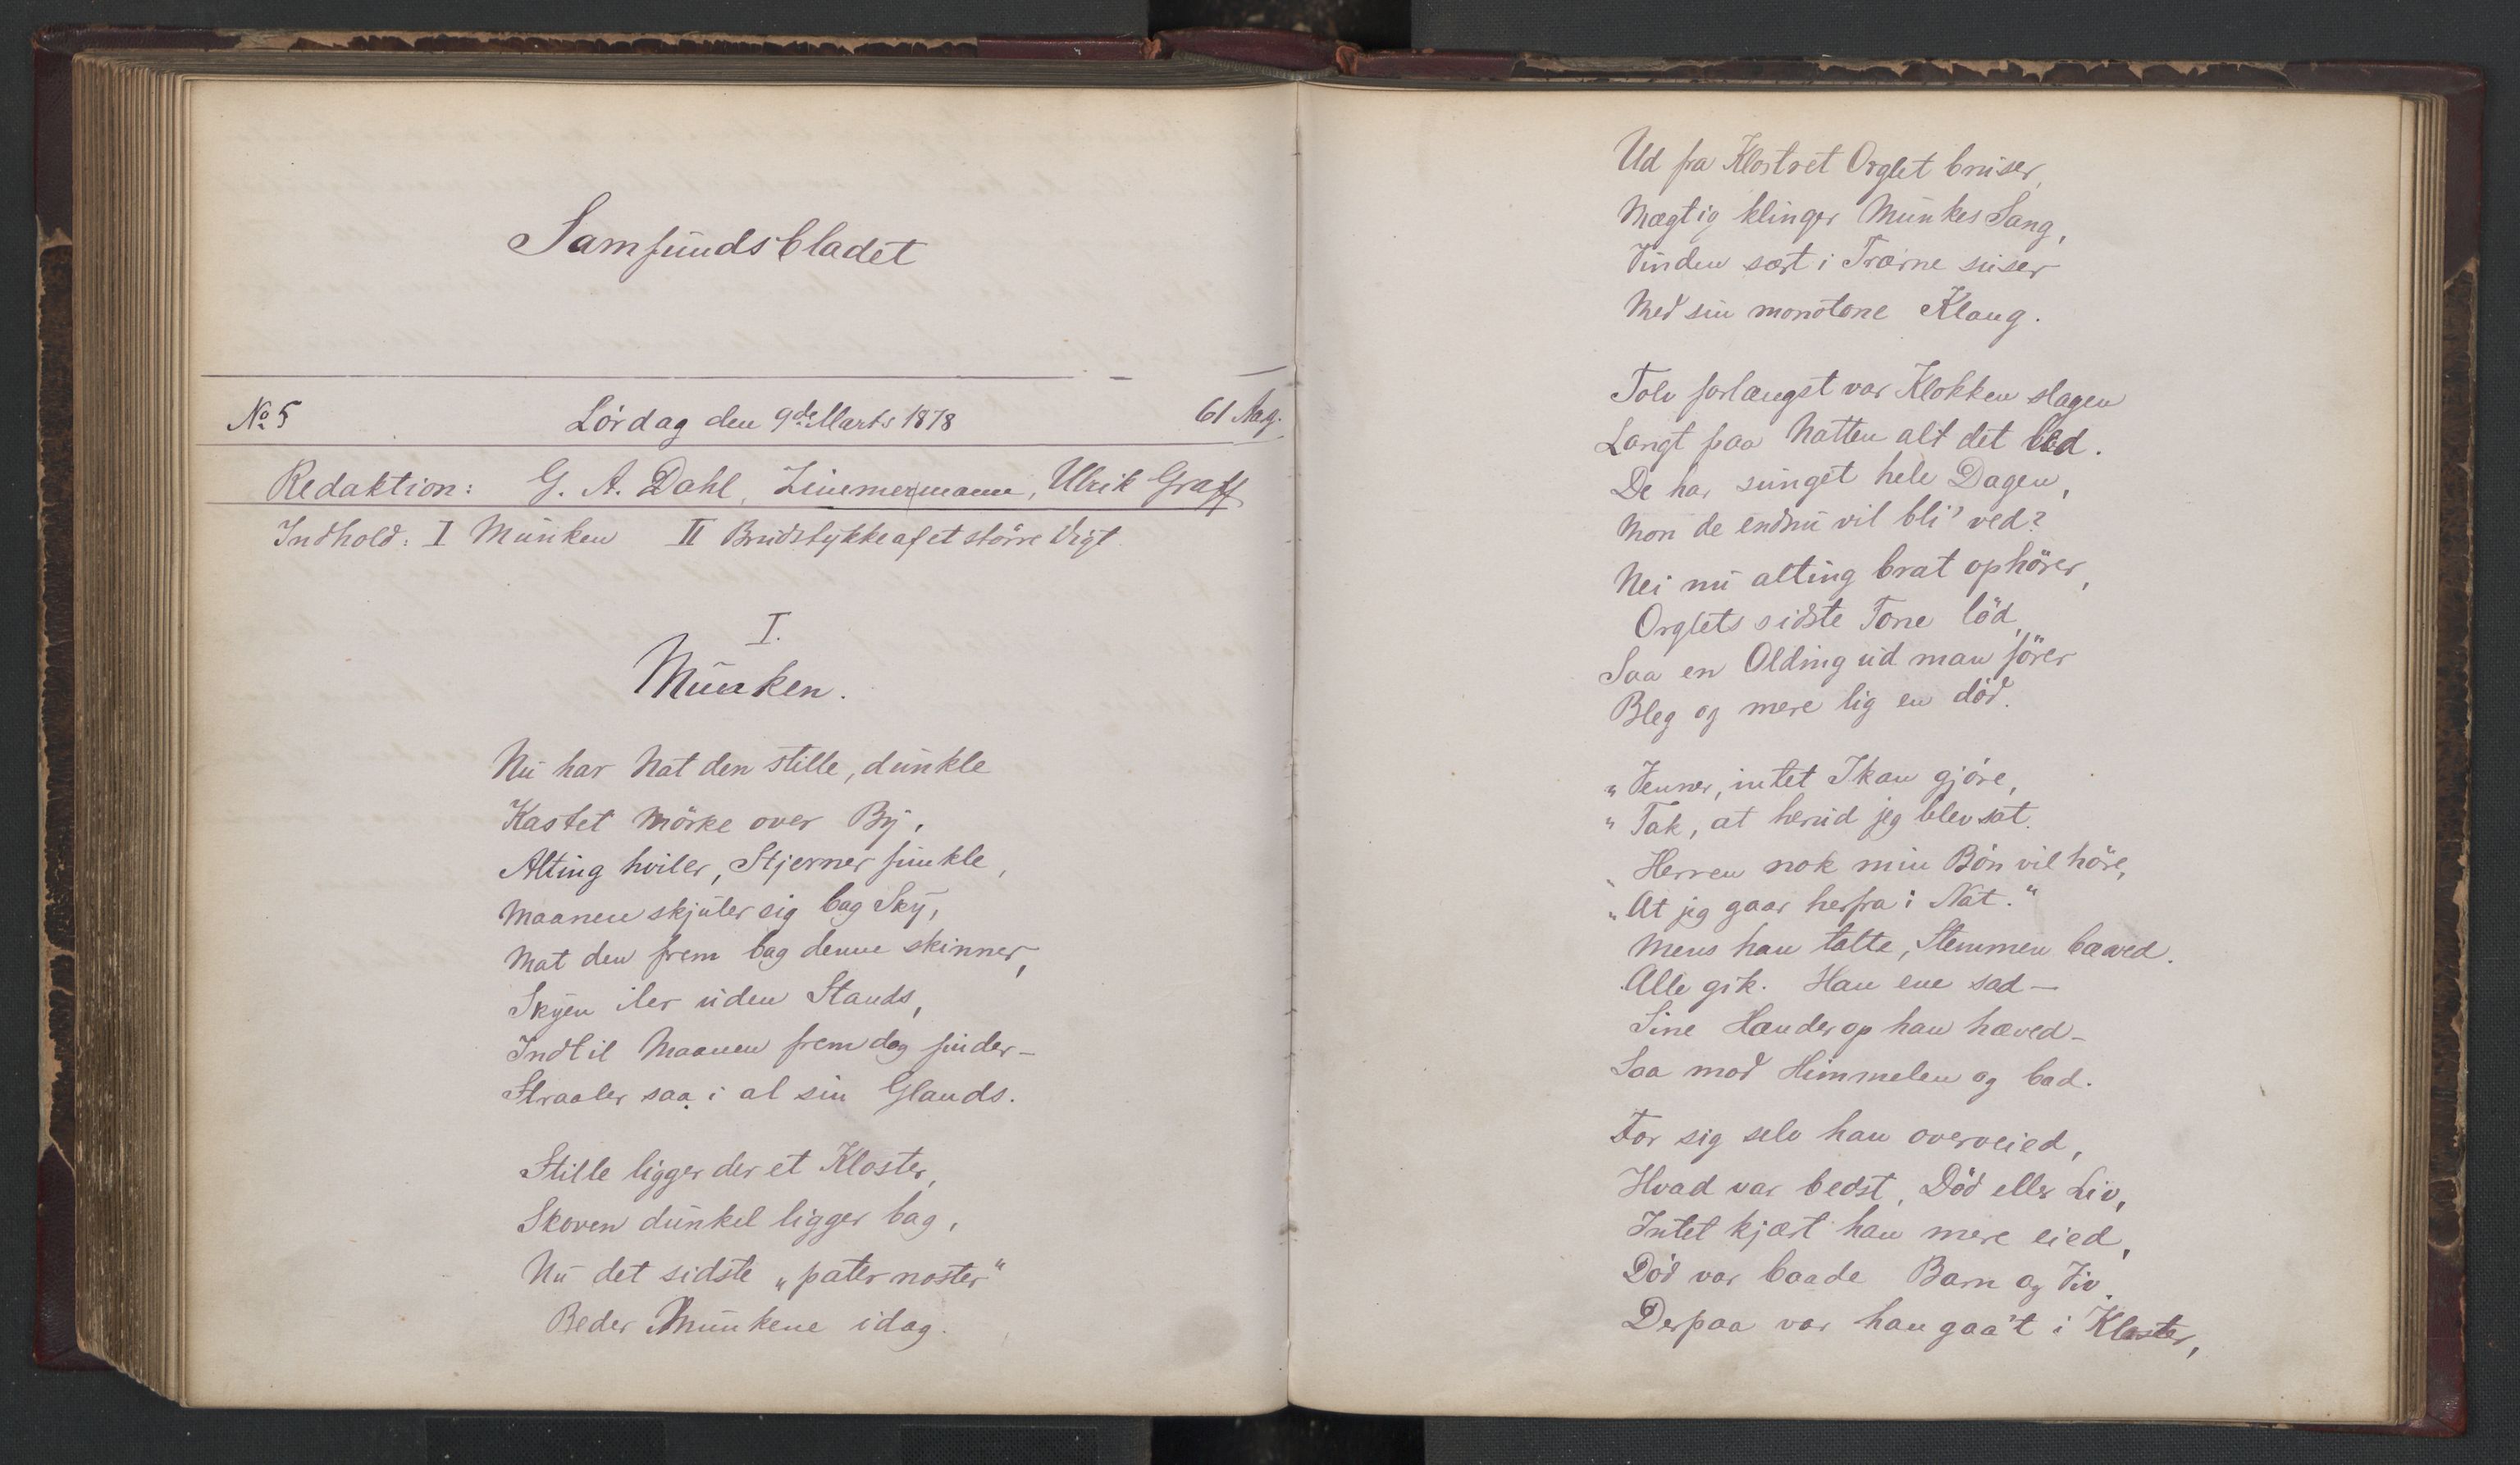 Samfundsbladet
No 5 Lördag den 9de Marts 1878 61 Aarg.
Redaktion: G. A. Dahl, Zimmermann, Ulrik Graff
Indhold: I Munken II Brudstykke af et större Digt
I.
Munken.
Nu har Nat den stille, dunkle
Kastet Mörke over By,
Alting hviler, Stjerner funkle,
Maanen skjuler sig bag Sky,
Mat den frem bag denne skinner,
Skyen iler uden Stands,
Indtil Maanen frem dog finder –
Straaler saa i al sin Glands.
Stille ligger der et Kloster,
Skoven dunkel ligger bag,
Nu det sidste „pater noster“
Beder Munkene idag.
Ud fra Klostret Orglet bruser,
Mægtig klinger Munkes Sang,
Vinden sært i Træerne suser
Med sin monotone Klang.
Tolv forlængst var Klokken slagen
Langt paa Natten alt det led.
De har sunget hele Dagen,
Mon de endnu vil bli' ved?
Nei nu alting brat ophörer,
Orglets sidste Tone löd,
Saa en Olding ud man förer
Bleg og mere lig en död.
„Venner, intet I kan gjöre,
„Tak, at herud jeg blev sat.
„Herren nok min Bön vil höre,
„At jeg gaar herfra i Nat.“
Mens han talte, Stemmen bæved.
Alle gik. Han ene sad –
Sine Hænder op han hæved –
Saa mod Himmelen og bad.
For sig selv han overveied,
Hvad var bedst, Död eller Liv,
Intet kjært han mere eied,
Död var baade Barn og Viv.
Derpaa var han gaa't i Kloster,